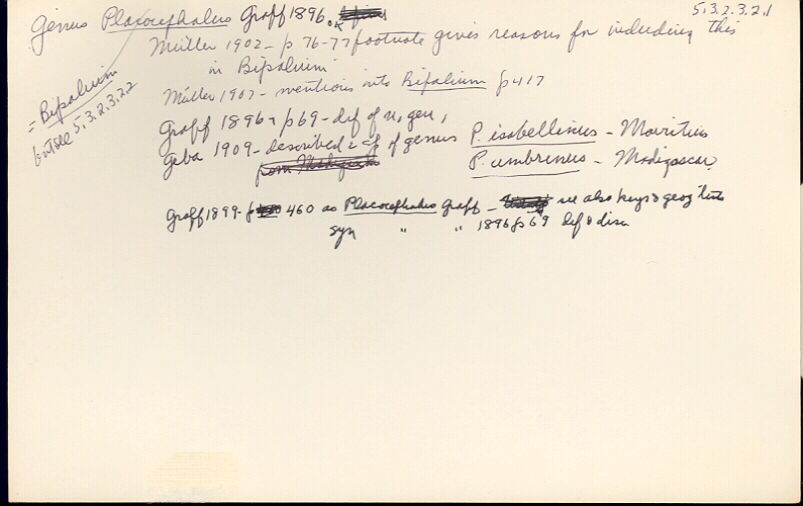 5.3.2.3.2.1
Genus Placocephalus Graff 1896. OK
Müller 1902 - p 76-77 footnote gives reasons for including this
in Bipalium
= Bipalium
but see 5.3.2.3.2.2
Müller 1907 - mentions into Bipalium p 417
Graff 1896 - p 69 - def of n. gen.
Geba 1909 - described 2 sp of genus P. isabellinus - Mauritius
P. umbrinus - Madigascar,
Graff 1899 - p 460 as Placocephalus Graff - see also keys & geog lists
syn " " 1896 p 69 def & disc